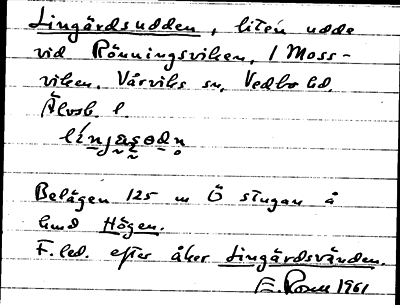 Lingärdsudden, liten udde
vid Rönningsviken, i Moss-
viken. Vårviks sn, Vedbo hd,
Älvsb. l.
Belägen 125 m Ö stugan å
hmd Högen.
F. led. efter åker Lingärdsvänden.
1961